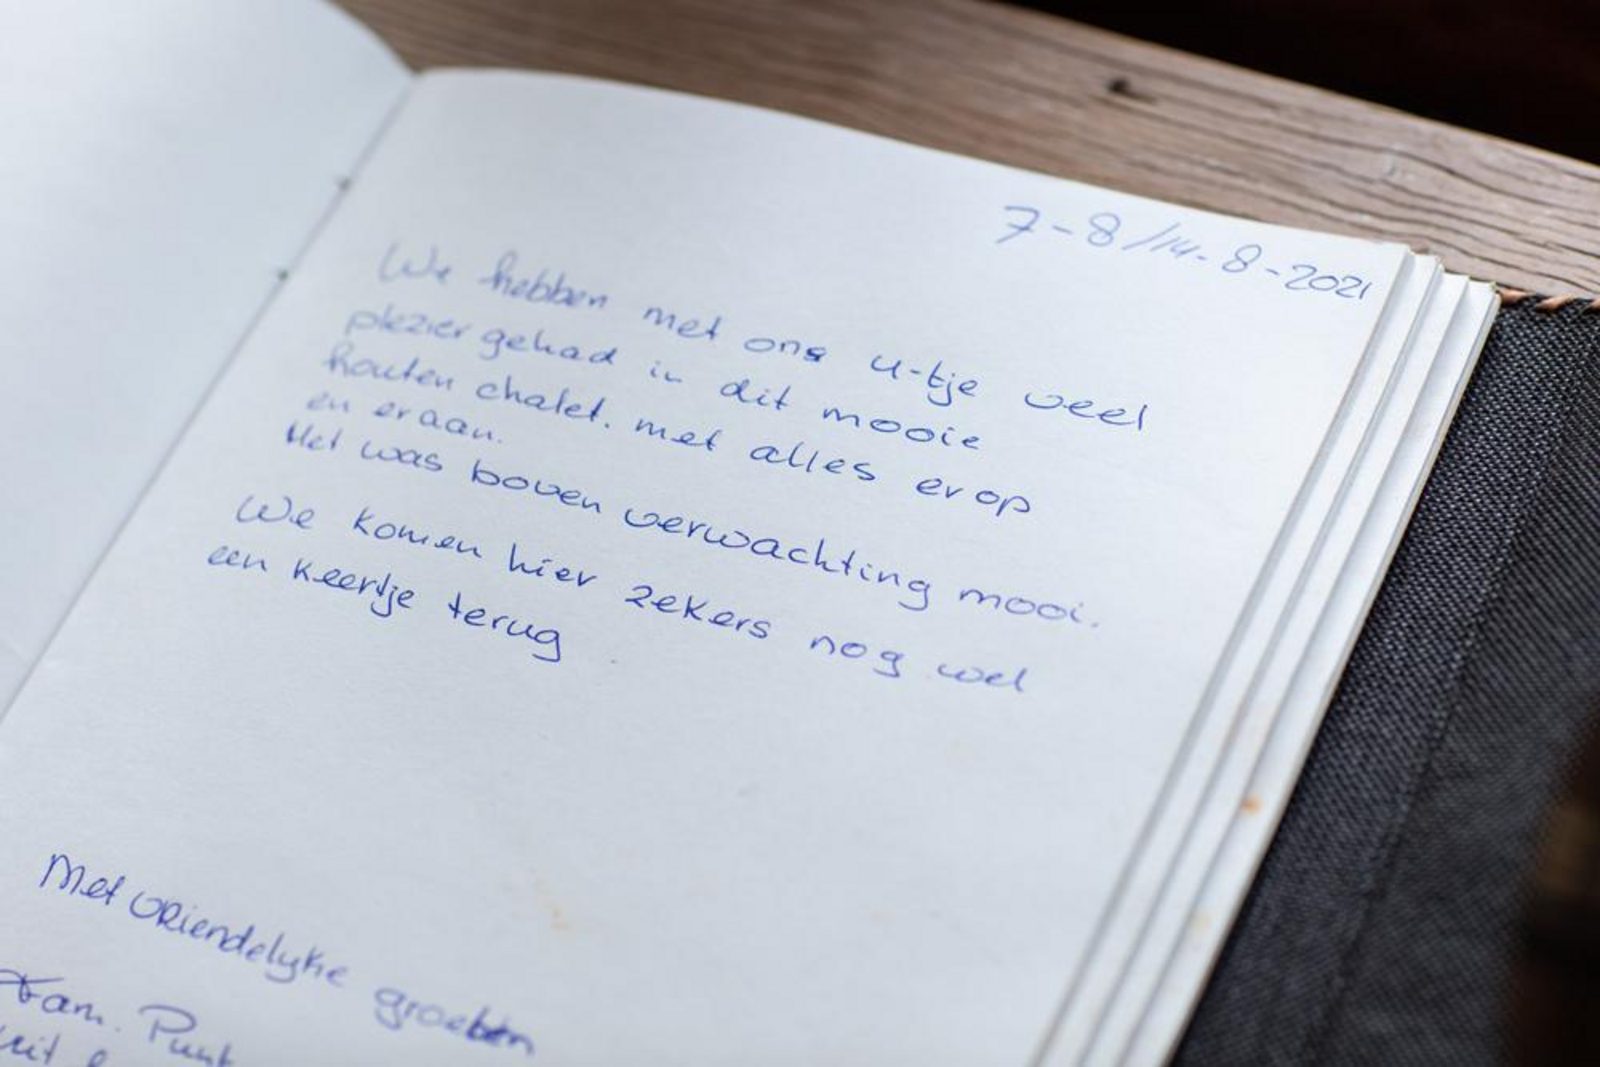 7-8/14-8-2021
We hebben met ons u-tje veel
plezier gehad in dit mooie
houten chalet. met alles erop
en eraan.
Het was boven verwachting mooi.
We komen hier zekers nog wel
een keertje terug
Met vriendelyke groeten
Fam. Punt
uit